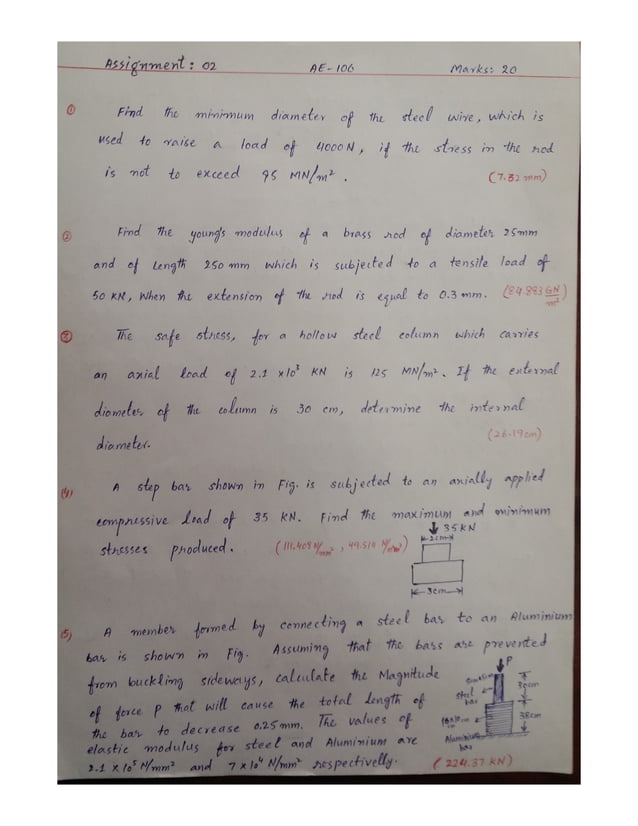 Assignment: 02 AE-106 Marks: 20
① Find the minimum diameter of the steel wire, which is
used to raise a load of 4000N, if the stress in the rod
is not to exceed 95 MN/m². (7.32 mm)
② Find the young's modulus of a brass rod of diameter 25mm
and of Length 250 mm which is subjected to a tensile load of
50 KN, When the extension of the rod is equal to 0.3 mm. (84.883 GN/m²)
③ The safe stress, for a hollow steel column which carries
an axial load of 2.1 ×10³ KN is 125 MN/m². If the external
diameter of the column is 30 cm, determine the internal
diameter. (26.19cm)
(4) A step bar shown in Fig. is subjected to an axially applied
compressive load of 35 KN. Find the maximum and minimum
stresses produced. (111.408 N/mm², 49.514 N/mm²)
35 KN
2cm
3cm
(5) A member formed by connecting a steel bar to an Aluminium
bar is shown in Fig. Assuming that the bars are prevented
from buckling sideways, calculate the Magnitude
of force P that will cause the total Length of
the bar to decrease 0.25mm. The values of
elastic modulus for steel and Aluminium are
2.1 × 10⁵ N/mm² and 7 × 10⁴ N/mm² respectivelly. (224.37 KN)
P
Steel bar
30cm
38cm
Aluminium bar